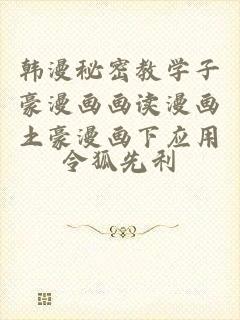 韩漫秘密教学子
豪漫画画读漫画
土豪漫画下应用
令狐先利